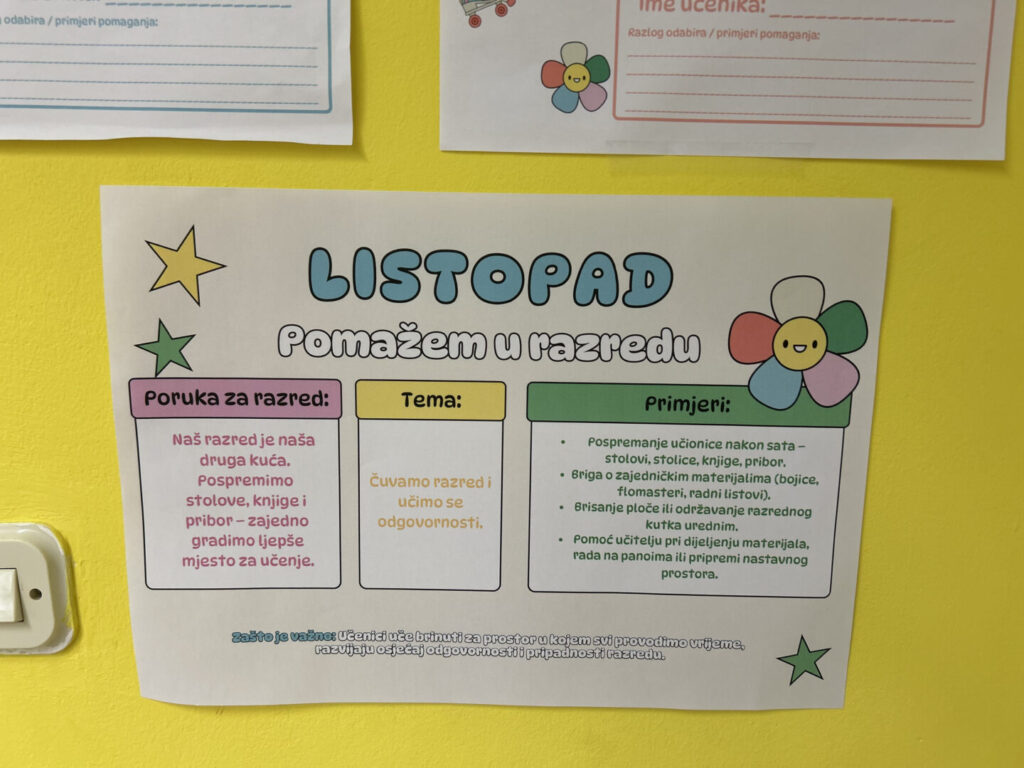 odabira / primjeri pomaganja:
Ime učenika:
Razlog odabira / primjeri pomaganja:
LISTOPAD
Pomažem u razredu
Poruka za razred:
Naš razred je naša
druga kuća.
Pospremimo
stolove, knjige i
pribor – zajedno
gradimo ljepše
mjesto za učenje.
Tema:
Čuvamo razred i
učimo se
odgovornosti.
Primjeri:
• Pospremanje učionice nakon sata –
stolovi, stolice, knjige, pribor.
• Briga o zajedničkim materijalima (bojice,
flomasteri, radni listovi).
• Brisanje ploče ili održavanje razrednog
kutka urednim.
• Pomoć učitelju pri dijeljenju materijala,
rada na panoima ili pripremi nastavnog
prostora.
Zašto je važno: Učenici uče brinuti za prostor u kojem svi provodimo vrijeme,
razvijaju osjećaj odgovornosti i pripadnosti razredu.